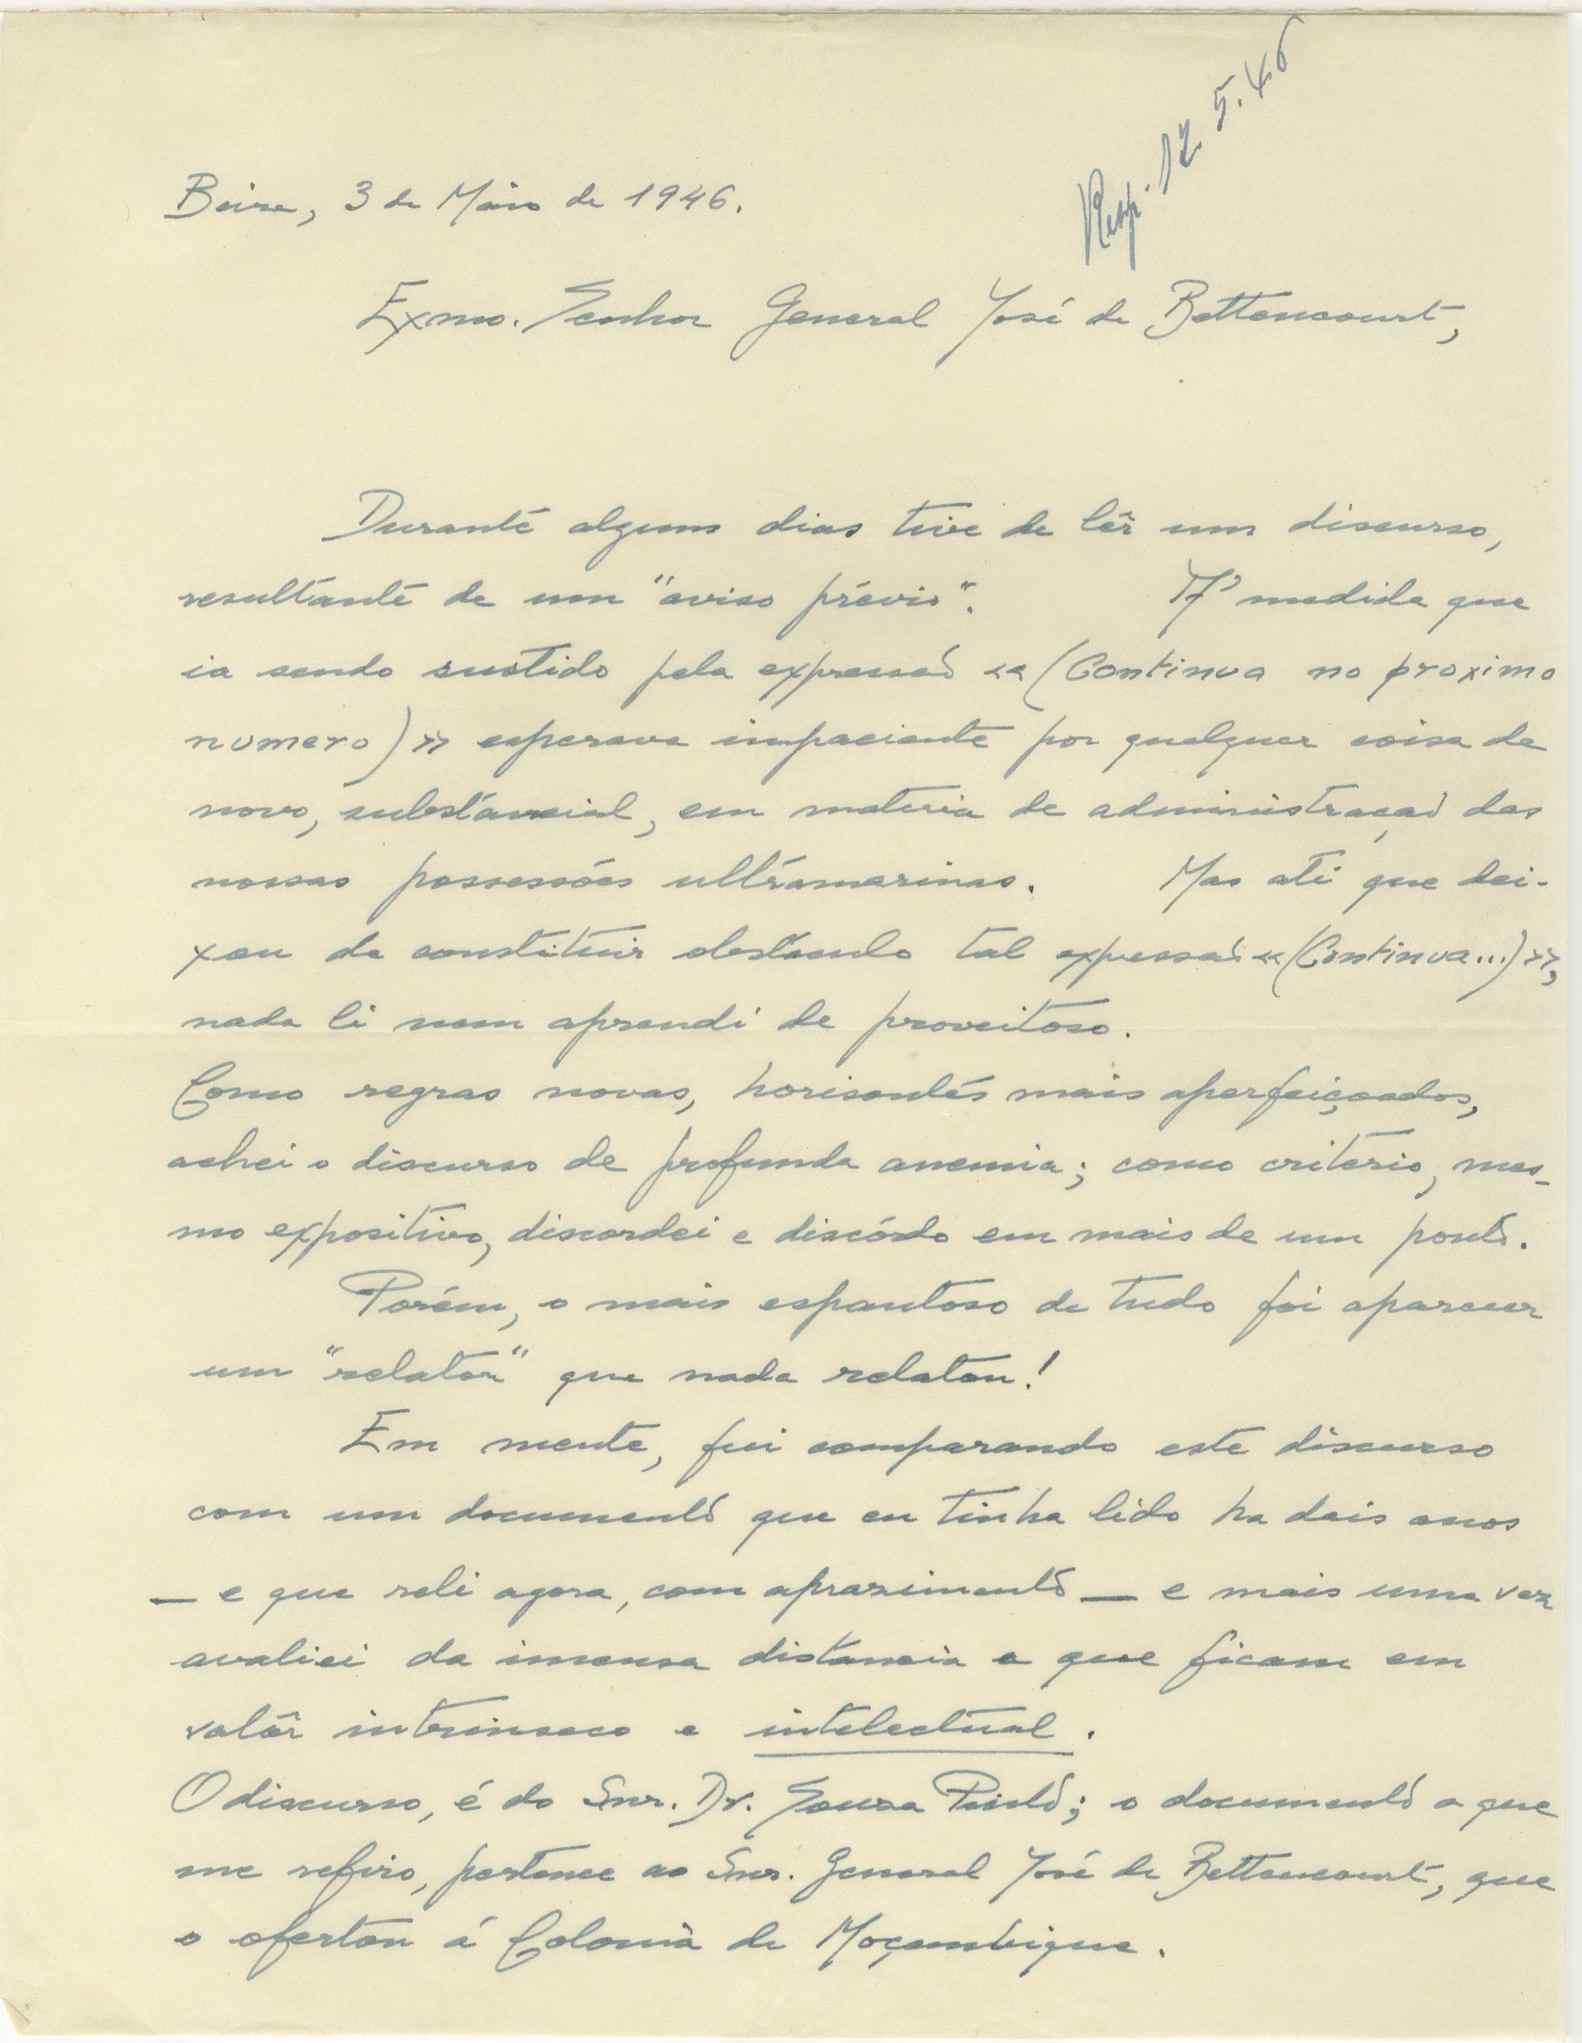 Resp. 12.5.46
Beira, 3 de Maio de 1946.
Exmo. Senhor General José de Bettencourt,
Durante alguns dias tive de lêr um discurso,
resultante de um "aviso prévio". A' medida que
ia sendo sustido pela expressaõ «(Continua no proximo
numero)» esperava impaciente por qualquer coisa de
novo, substancial, em materia de administraçaõ das
nossas possessões ultramarinas. Mas até que dei-
xou de constituir obstaculo tal expressaõ «(Continua...)»,
nada li nem aprendi de proveitoso.
Como regras novas, horisontes mais aperfeiçoados,
achei o discurso de profunda anemia; como criterio, mes-
mo expositivo, discordei e discórdo em mais de um ponto.
Porém, o mais espantoso de tudo foi aparecer
um "relator" que nada relatou!
Em mente, fui comparando este discurso
com um documento que eu tinha lido ha dois anos
— e que reli agora, com aprazimento — e mais uma vez
avaliei da imensa distancia a que ficam em
valôr intrinseco e intelectual.
O discurso, é do Snr. Dr. Sousa Pinto; o documento a que
me refiro, pertence ao Snr. General José de Bettencourt, que
o ofertou á Colonia de Moçambique.